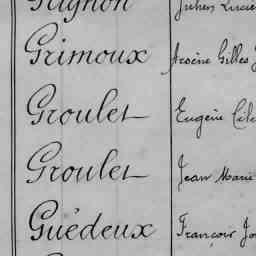 Grignon Julien Lucie
Grimoux Arsène Gilles
Groulet Eugène
Groulet Jean Marie
Guédeux François Jo